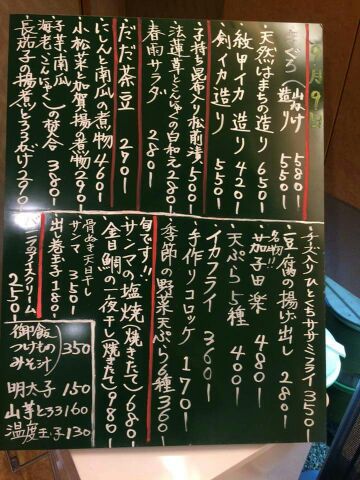 9月9日
まぐろ 山かけ 580
造り 550
天然はまちの造り 650
紋甲イカ造り 420
剣イカ造り 550
子持ち昆布入り松前漬 500
法蓮草とこんにゃくの白和え 280
春雨サラダ 280
だだ茶豆 270
にんにくと南瓜の煮物 460
小松菜と加賀揚の煮物 290
子芋、南瓜
海老、こんにゃくの炊合 380
長茄子の揚煮とろろがけ 290
チーズ入りひとくちササミフライ 350
豆腐の揚げ出し 280
名物!! 茄子田楽 480
天ぷら5種 400
イカフライ 360
手作りコロッケ 170
季節の野菜天ぷら6種 360
旬です!!
サンマの塩焼(焼きたて) 680
金目鯛の一夜干し(焼きたて) 980
骨ぬき天日干し
サンマ 350
出し巻玉子 180
バニラアイスクリーム 250
御飯
つけもの
みそ汁 350
明太子 150
山芋とろろ 160
温度玉子 130